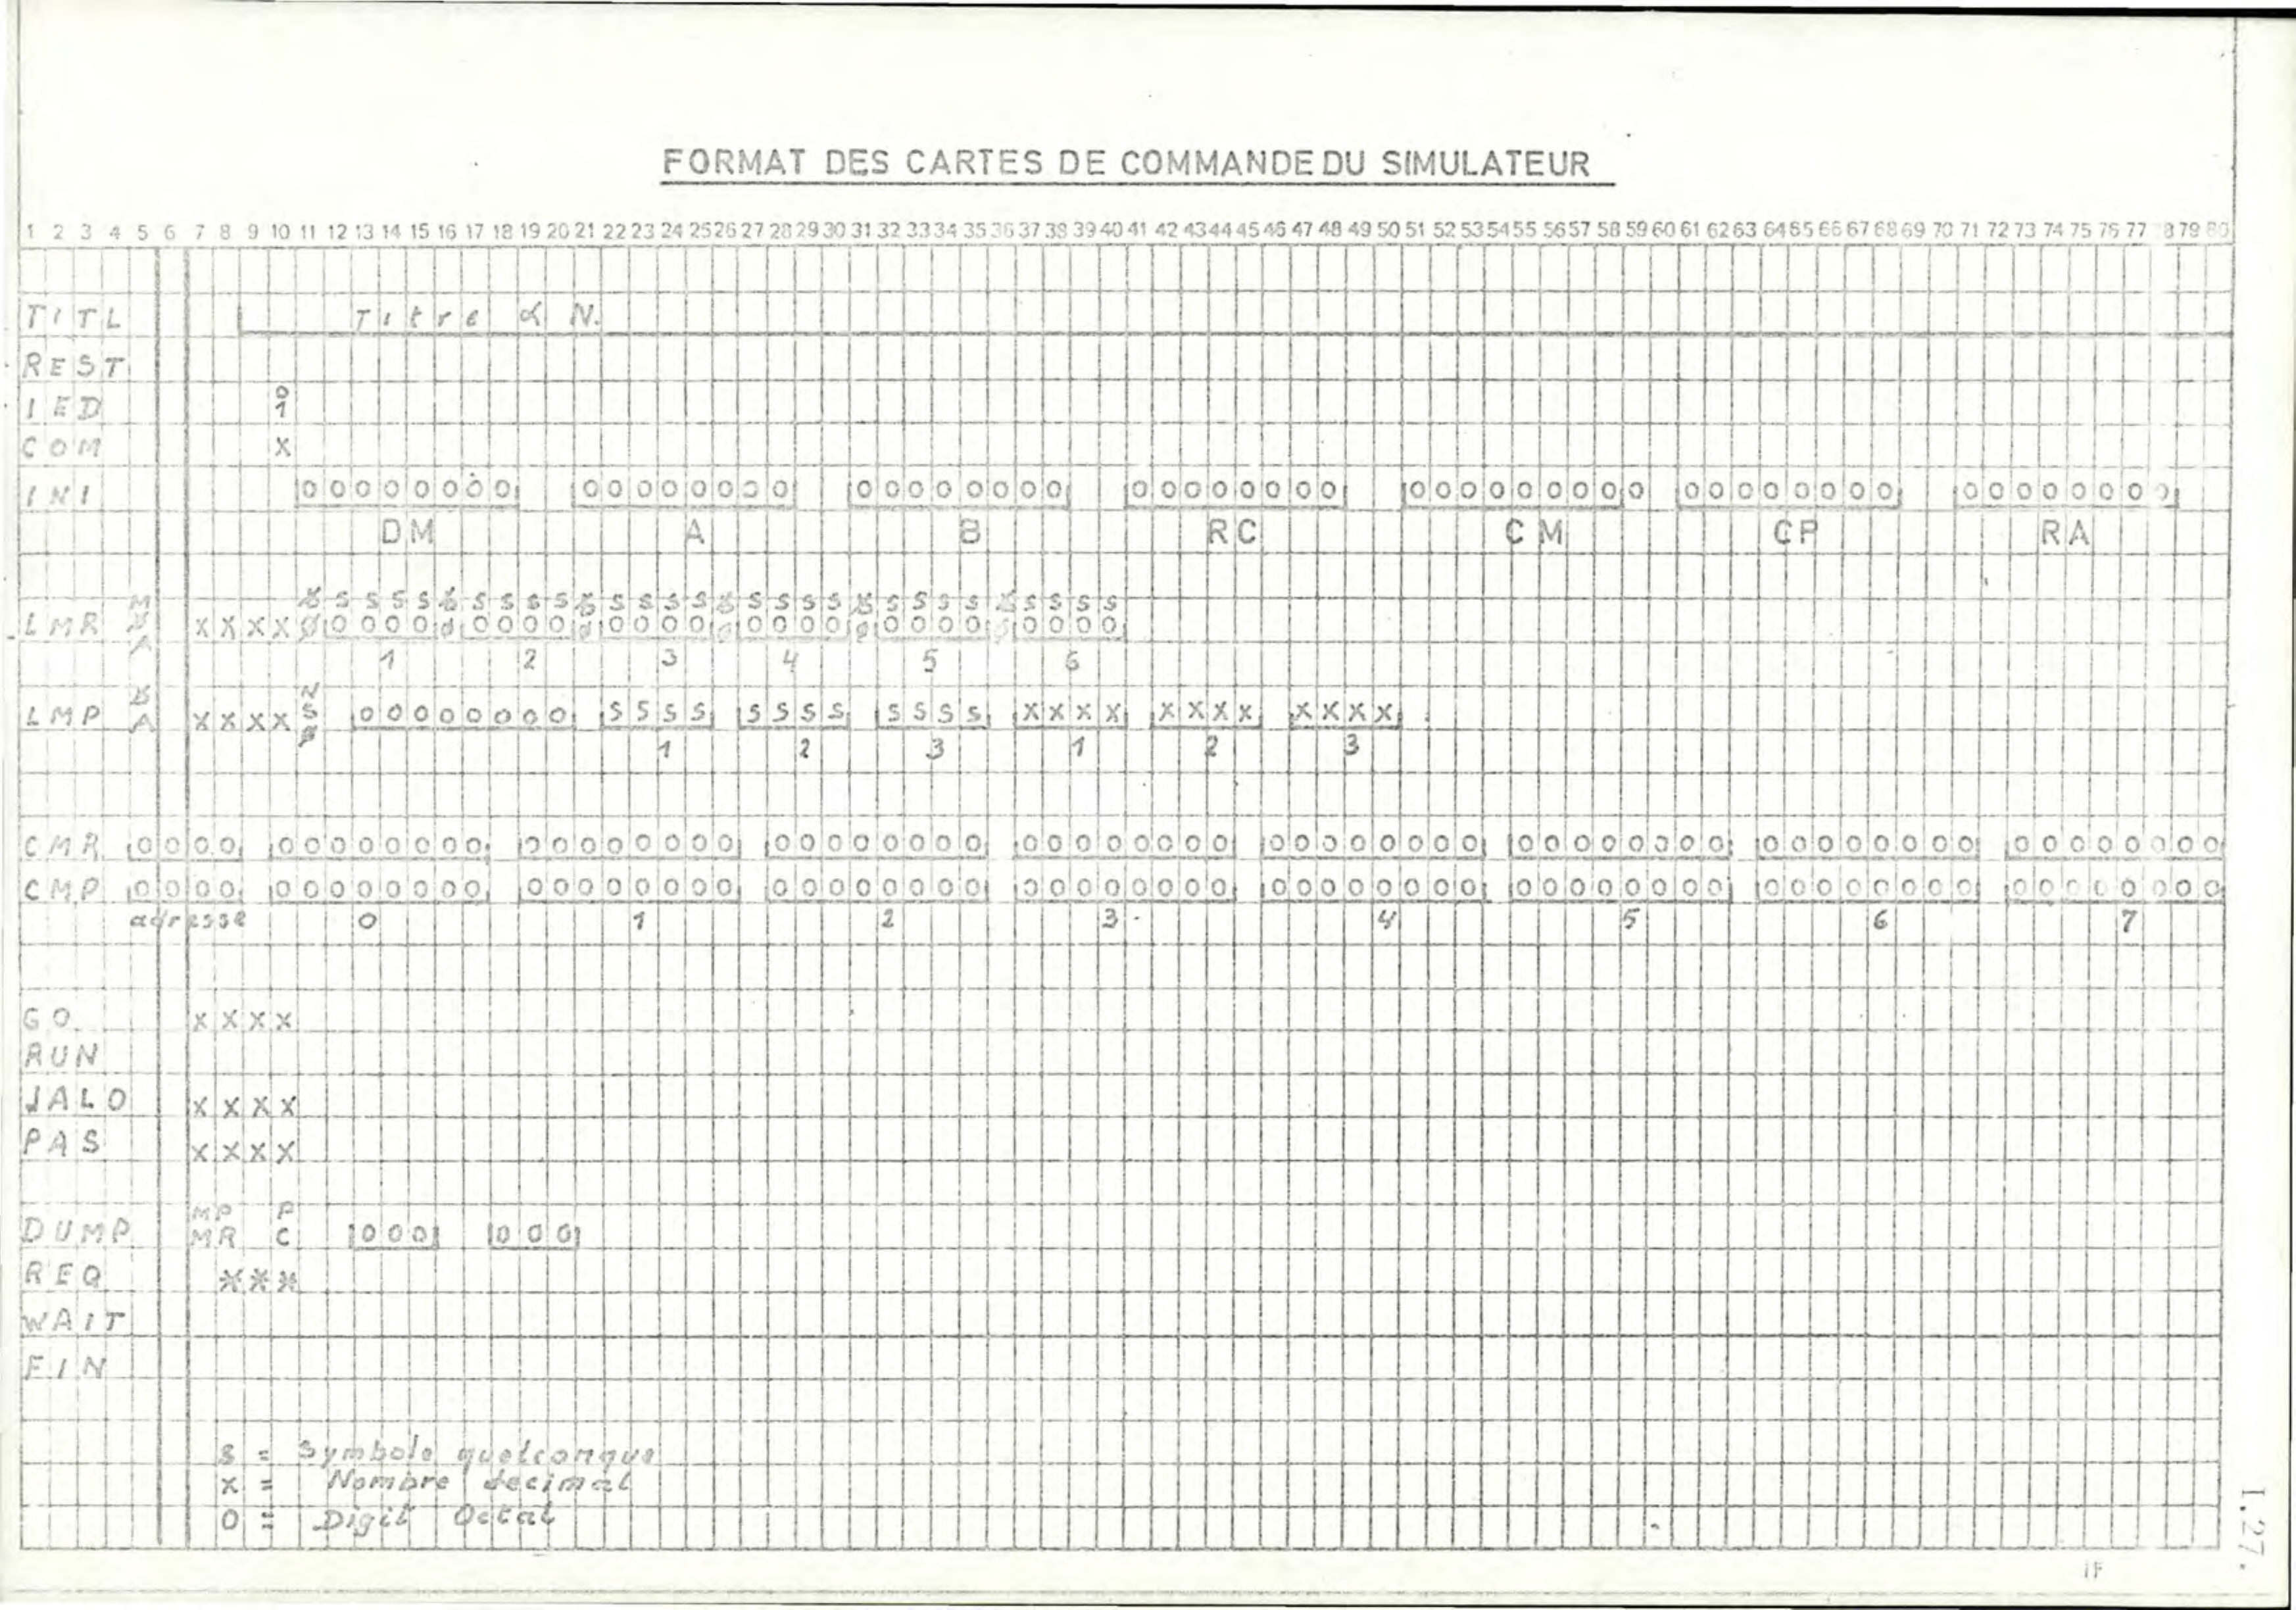 FORMAT DES CARTES DE COMMANDE DU SIMULATEUR
1 2 3 4 5 6 7 8 9 10 11 12 13 14 15 16 17 18 19 20 21 22 23 24 25 26 27 28 29 30 31 32 33 34 35 36 37 38 39 40 41 42 43 44 45 46 47 48 49 50 51 52 53 54 55 56 57 58 59 60 61 62 63 64 65 66 67 68 69 70 71 72 73 74 75 76 77 78 79 80
TITL Titre α N.
REST
0
IED 1
COM X
INI 00000000 00000000 00000000 00000000 000000000 00000000 00000000
DM A B RC CM CP RA
M ƀ S S S S ƀ S S S S ƀ S S S S ƀ S S S S ƀ S S S S ƀ S S S S
LMR ƀ XXXX ∅ 0000 ∅ 0000 ∅ 0000 ∅ 0000 ∅ 0000 ∅ 0000
A 1 2 3 4 5 6
ƀ N
LMP A XXXX S 00000000 SSSS SSSS SSSS XXXX XXXX XXXX
∅ 1 2 3 1 2 3
CMR 0000 00000000 00000000 00000000 00000000 00000000 00000000 00000000 00000000
CMP 0000 00000000 00000000 00000000 00000000 00000000 00000000 00000000 00000000
adresse 0 1 2 3 4 5 6 7
GO XXXX
RUN
JALO XXXX
PAS XXXX
MP P
DUMP MR C 000 000
REQ ***
WAIT
FIN
S = Symbole quelconque
X = Nombre decimal
O = Digit Octal
1.27.
1F